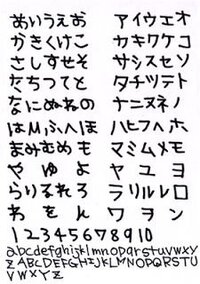 あいうえお アイウエオ
かきくけこ カキクケコ
さしすせそ サシスセソ
たちつてと タチツテト
なにぬねの ナニヌネノ
はひふへほ ハヒフヘホ
まみむめも マミムメモ
やゆよ ヤユヨ
らりるれろ ラリルレロ
わをん ワヲン
12345678910
abcdefghijklmnopqrstuvwxy
zABCDEFGHIJKLMNOPQRST
UVWXYZ